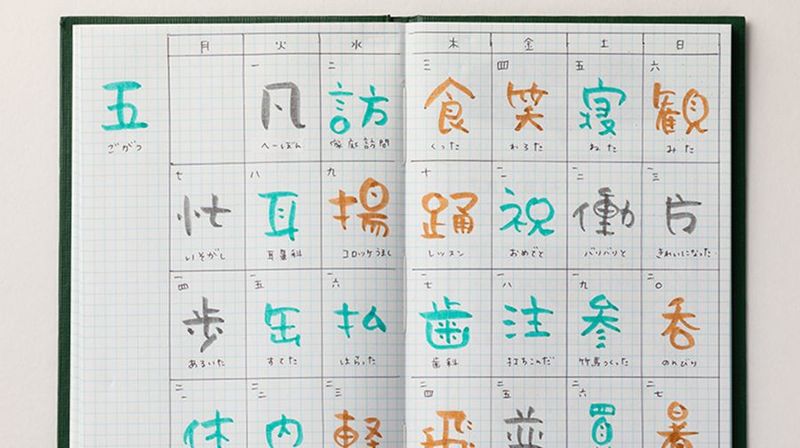 月 火 水 木 金 土 日
五
ごがつ
一 二 三 四 五 六
凡 訪 食 笑 寝 観
へーぼん 家庭訪問 くった わろた ねた みた
七 八 九 十 一一 一二 一三
忙 耳 揚 踊 祝 働 片
いそがし 耳鼻科 コロッケうまし レッスン おめでと バリバリと きれいになった
一四 一五 一六 一七 一八 一九 二〇
歩 缶 払 歯 注 参 呑
あるいた すてた はらった 歯科 打ちこんだ 竹馬つくった のんびり
二一 二二 二三 二四 二五 二六 二七
休 内 軽 飛 並 買 暑